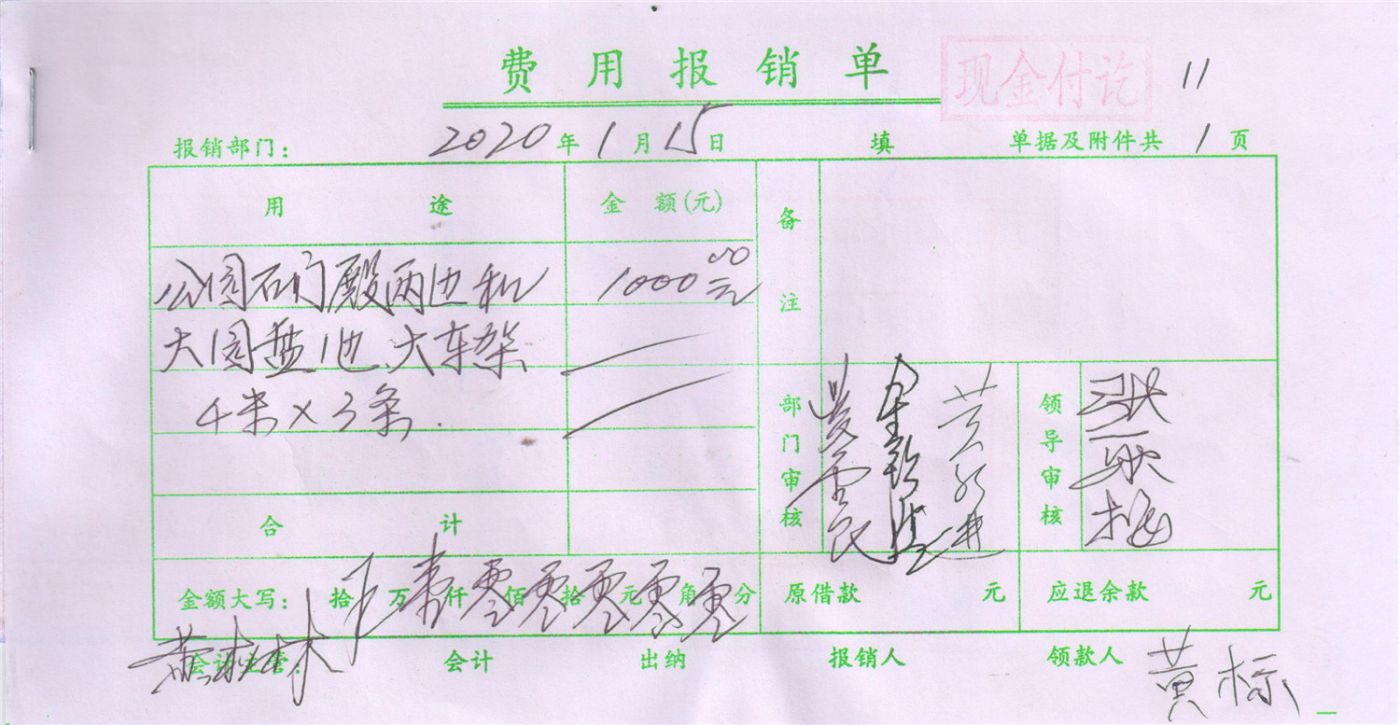 费用报销单
现金付讫
11
报销部门: 2020年1月15日 填 单据及附件共1页
用途 金额(元) 备注
公园石门殿两边和 1000.00元
大圆盘池、大车架
4米×3条.
部门审核 领导审核
合计
金额大写: 拾 万壹仟零佰零拾零元零角零分 原借款 元 应退余款 元
会计主管: 会计 出纳 报销人 领款人 黄标
黄林林